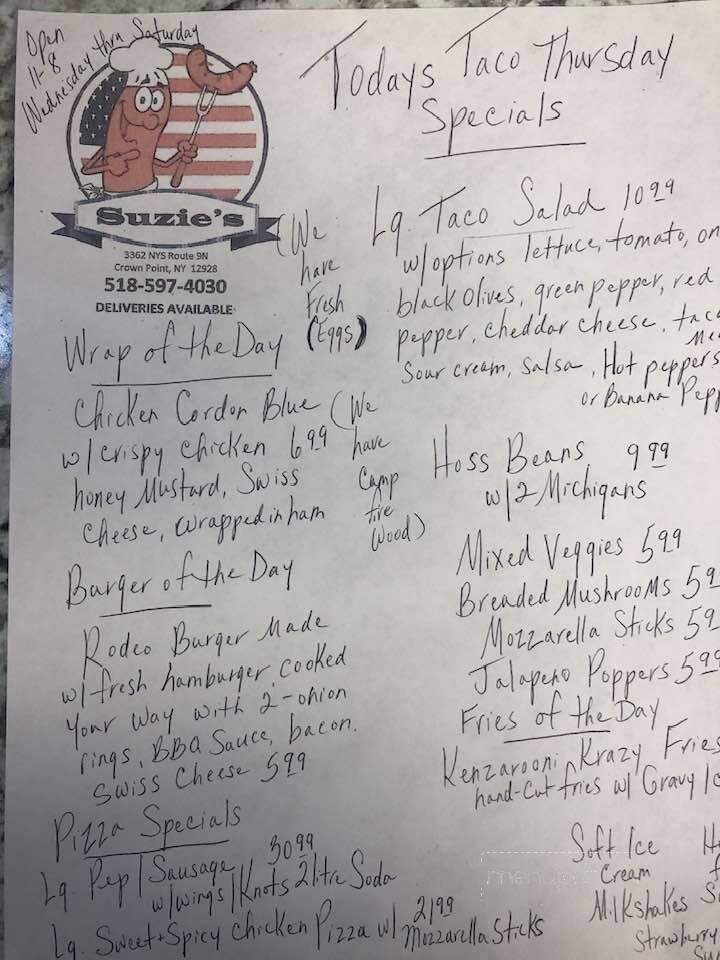 Open
11-8
Wednesday thru Saturday
Suzie's
3362 NYS Route 9N
Crown Point, NY 12928
518-597-4030
DELIVERIES AVAILABLE
Todays Taco Thursday
Specials
(We
have
Fresh
(Eggs)
Lg. Taco Salad 10.99
w/options lettuce, tomato, on
black olives, green pepper, red
pepper, cheddar cheese, taco
Sour cream, Salsa, Hot peppers
or Banana Pepp
Wrap of the Day
Chicken Cordon Blue
w/crispy chicken 6.99
honey Mustard, Swiss
cheese, wrapped in ham
(We
have
Camp
fire
Wood)
Hoss Beans 9.99
w/2 Michigans
Mixed Veggies 5.99
Breaded Mushrooms 5.9
Mozzarella Sticks 5.9
Jalapeno Poppers 5.99
Fries of the Day
Kenzarooni Krazy Fries
hand-cut fries w/ Gravy
Burger of the Day
Rodeo Burger Made
w/fresh hamburger cooked
your way with 2-onion
rings, BBQ Sauce, bacon.
Swiss Cheese 5.99
Pizza Specials
Lg. Pep/Sausage 30.99
w/wings/Knots 2 litre Soda
Lg. Sweet+Spicy Chicken Pizza w/ 21.99
Mozzarella Sticks
Soft Ice
Cream
Milkshakes
Strawberry